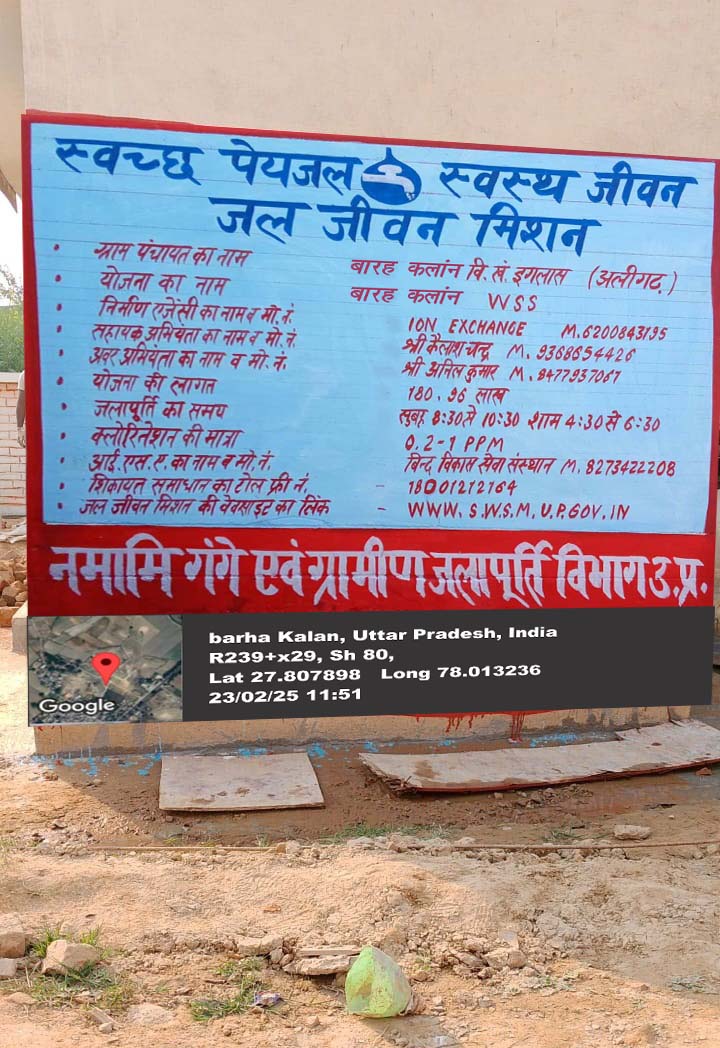 स्वच्छ पेयजल स्वस्थ जीवन
जल जीवन मिशन
• ग्राम पंचायत का नाम बारह कलांन वि. खं. इगलास (अलीगढ़)
• योजना का नाम बारह कलांन WSS
• निर्माण एजेंसी का नाम व मो. नं. ION EXCHANGE M. 6200843195
• सहायक अभियंता का नाम व मो. नं. श्री कैलाश चन्द्र M. 9368654426
• अवर अभियंता का नाम व मो. नं. श्री अनिल कुमार M. 8477937067
• योजना की लागत 180.96 लाख
• जलापूर्ति का समय सुबह 8:30 से 10:30 शाम 4:30 से 6:30
• क्लोरिनेशन की मात्रा 0.2-1 PPM
• आई. एस. ए. का नाम व मो. नं. बिन्द विकास सेवा संस्थान M. 8273422208
• शिकायत समाधान का टोल फ्री नं. - 18001212164
• जल जीवन मिशन की वेवसाइट का लिंक - WWW.SWSM.UP.GOV.IN
नमामि गंगे एवं ग्रामीण जलापूर्ति विभाग उ. प्र.
barha Kalan, Uttar Pradesh, India
R239+x29, Sh 80,
Lat 27.807898 Long 78.013236
23/02/25 11:51
Google